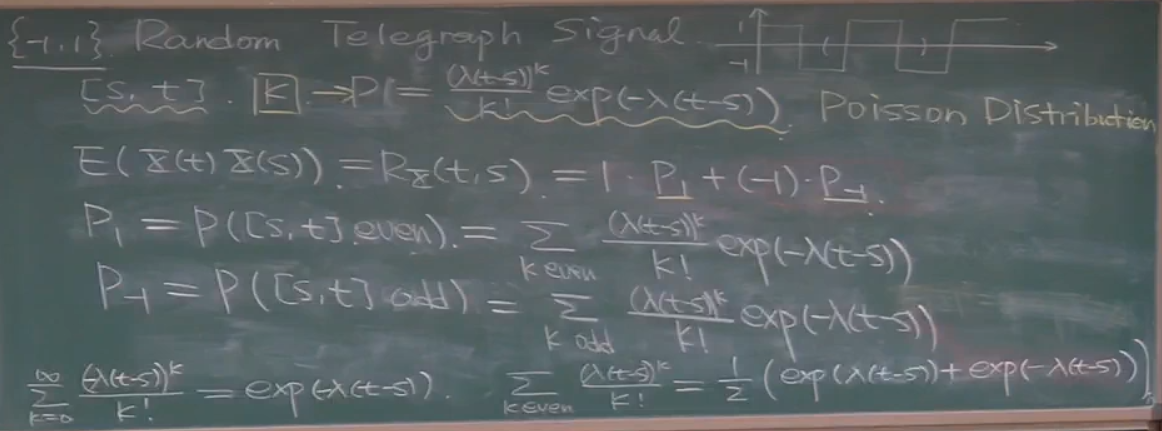 {-1,1}. Random Telegraph Signal. 1 -1
[s, t]. [K] → P(= (λ(t-s))^k / k! exp(-λ(t-s)). Poisson Distribution
E(X(t) X(s)) = R_X(t,s) = 1 · P_1 + (-1) · P_-1.
P_1 = P([s,t] even). = Σ_{k even} (λ(t-s))^k / k! exp(-λ(t-s))
P_-1 = P([s,t] odd) = Σ_{k odd} (λ(t-s))^k / k! exp(-λ(t-s))
Σ_{k=0}^∞ (-λ(t-s))^k / k! = exp(-λ(t-s)). Σ_{k even} (λ(t-s))^k / k! = 1/2 (exp(λ(t-s)) + exp(-λ(t-s)))